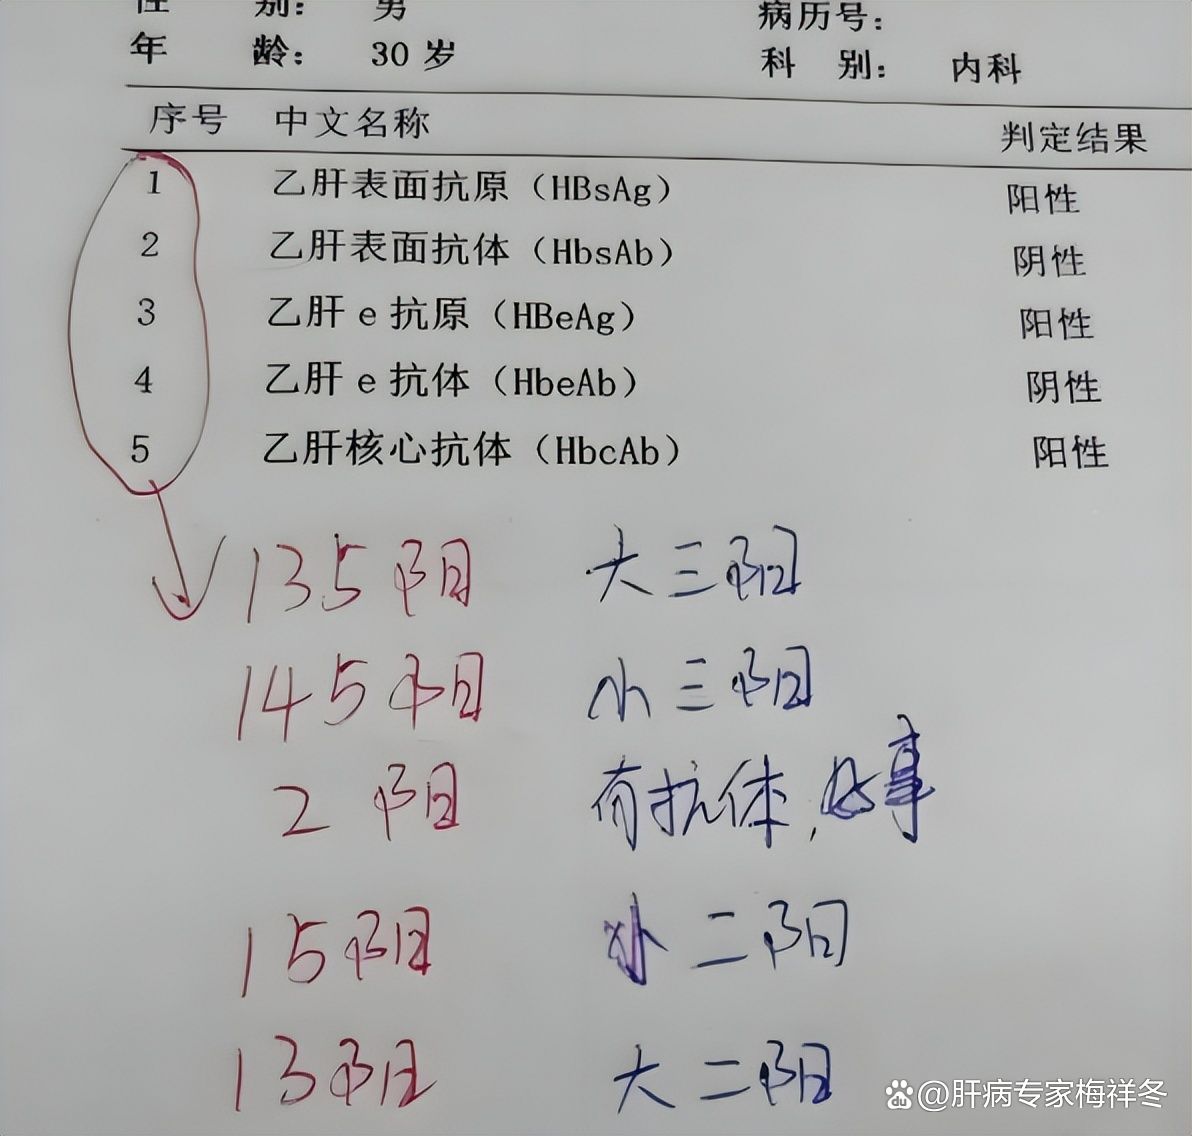 性 别: 男 病历号:
年 龄: 30 岁 科 别: 内科
序号 中文名称 判定结果
1 乙肝表面抗原（HBsAg） 阳性
2 乙肝表面抗体（HbsAb） 阴性
3 乙肝 e 抗原（HBeAg） 阳性
4 乙肝 e 抗体（HbeAb） 阴性
5 乙肝核心抗体（HbcAb） 阳性
135阳 大三阳
145阳 小三阳
2 阳 有抗体，好事
15阳 小二阳
13阳 大二阳
Bai du @肝病专家梅祥冬